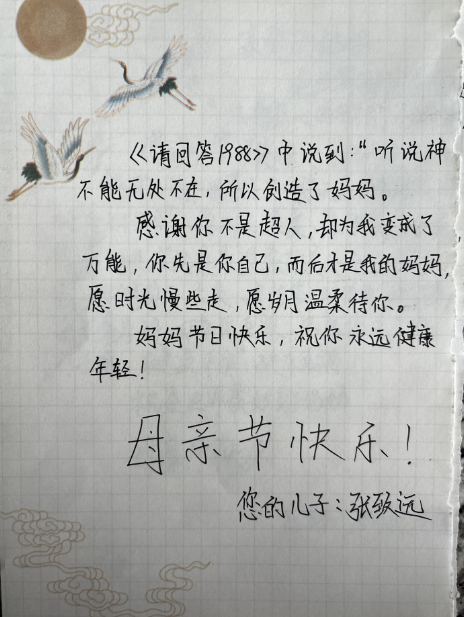 《请回答1988》中说到：“听说神
不能无处不在，所以创造了妈妈。
感谢你不是超人，却为我变成了
万能，你先是你自己，而后才是我的妈妈，
愿时光慢些走，愿岁月温柔待你。
妈妈节日快乐，祝你永远健康
年轻！
母亲节快乐！
您的儿子：张致远